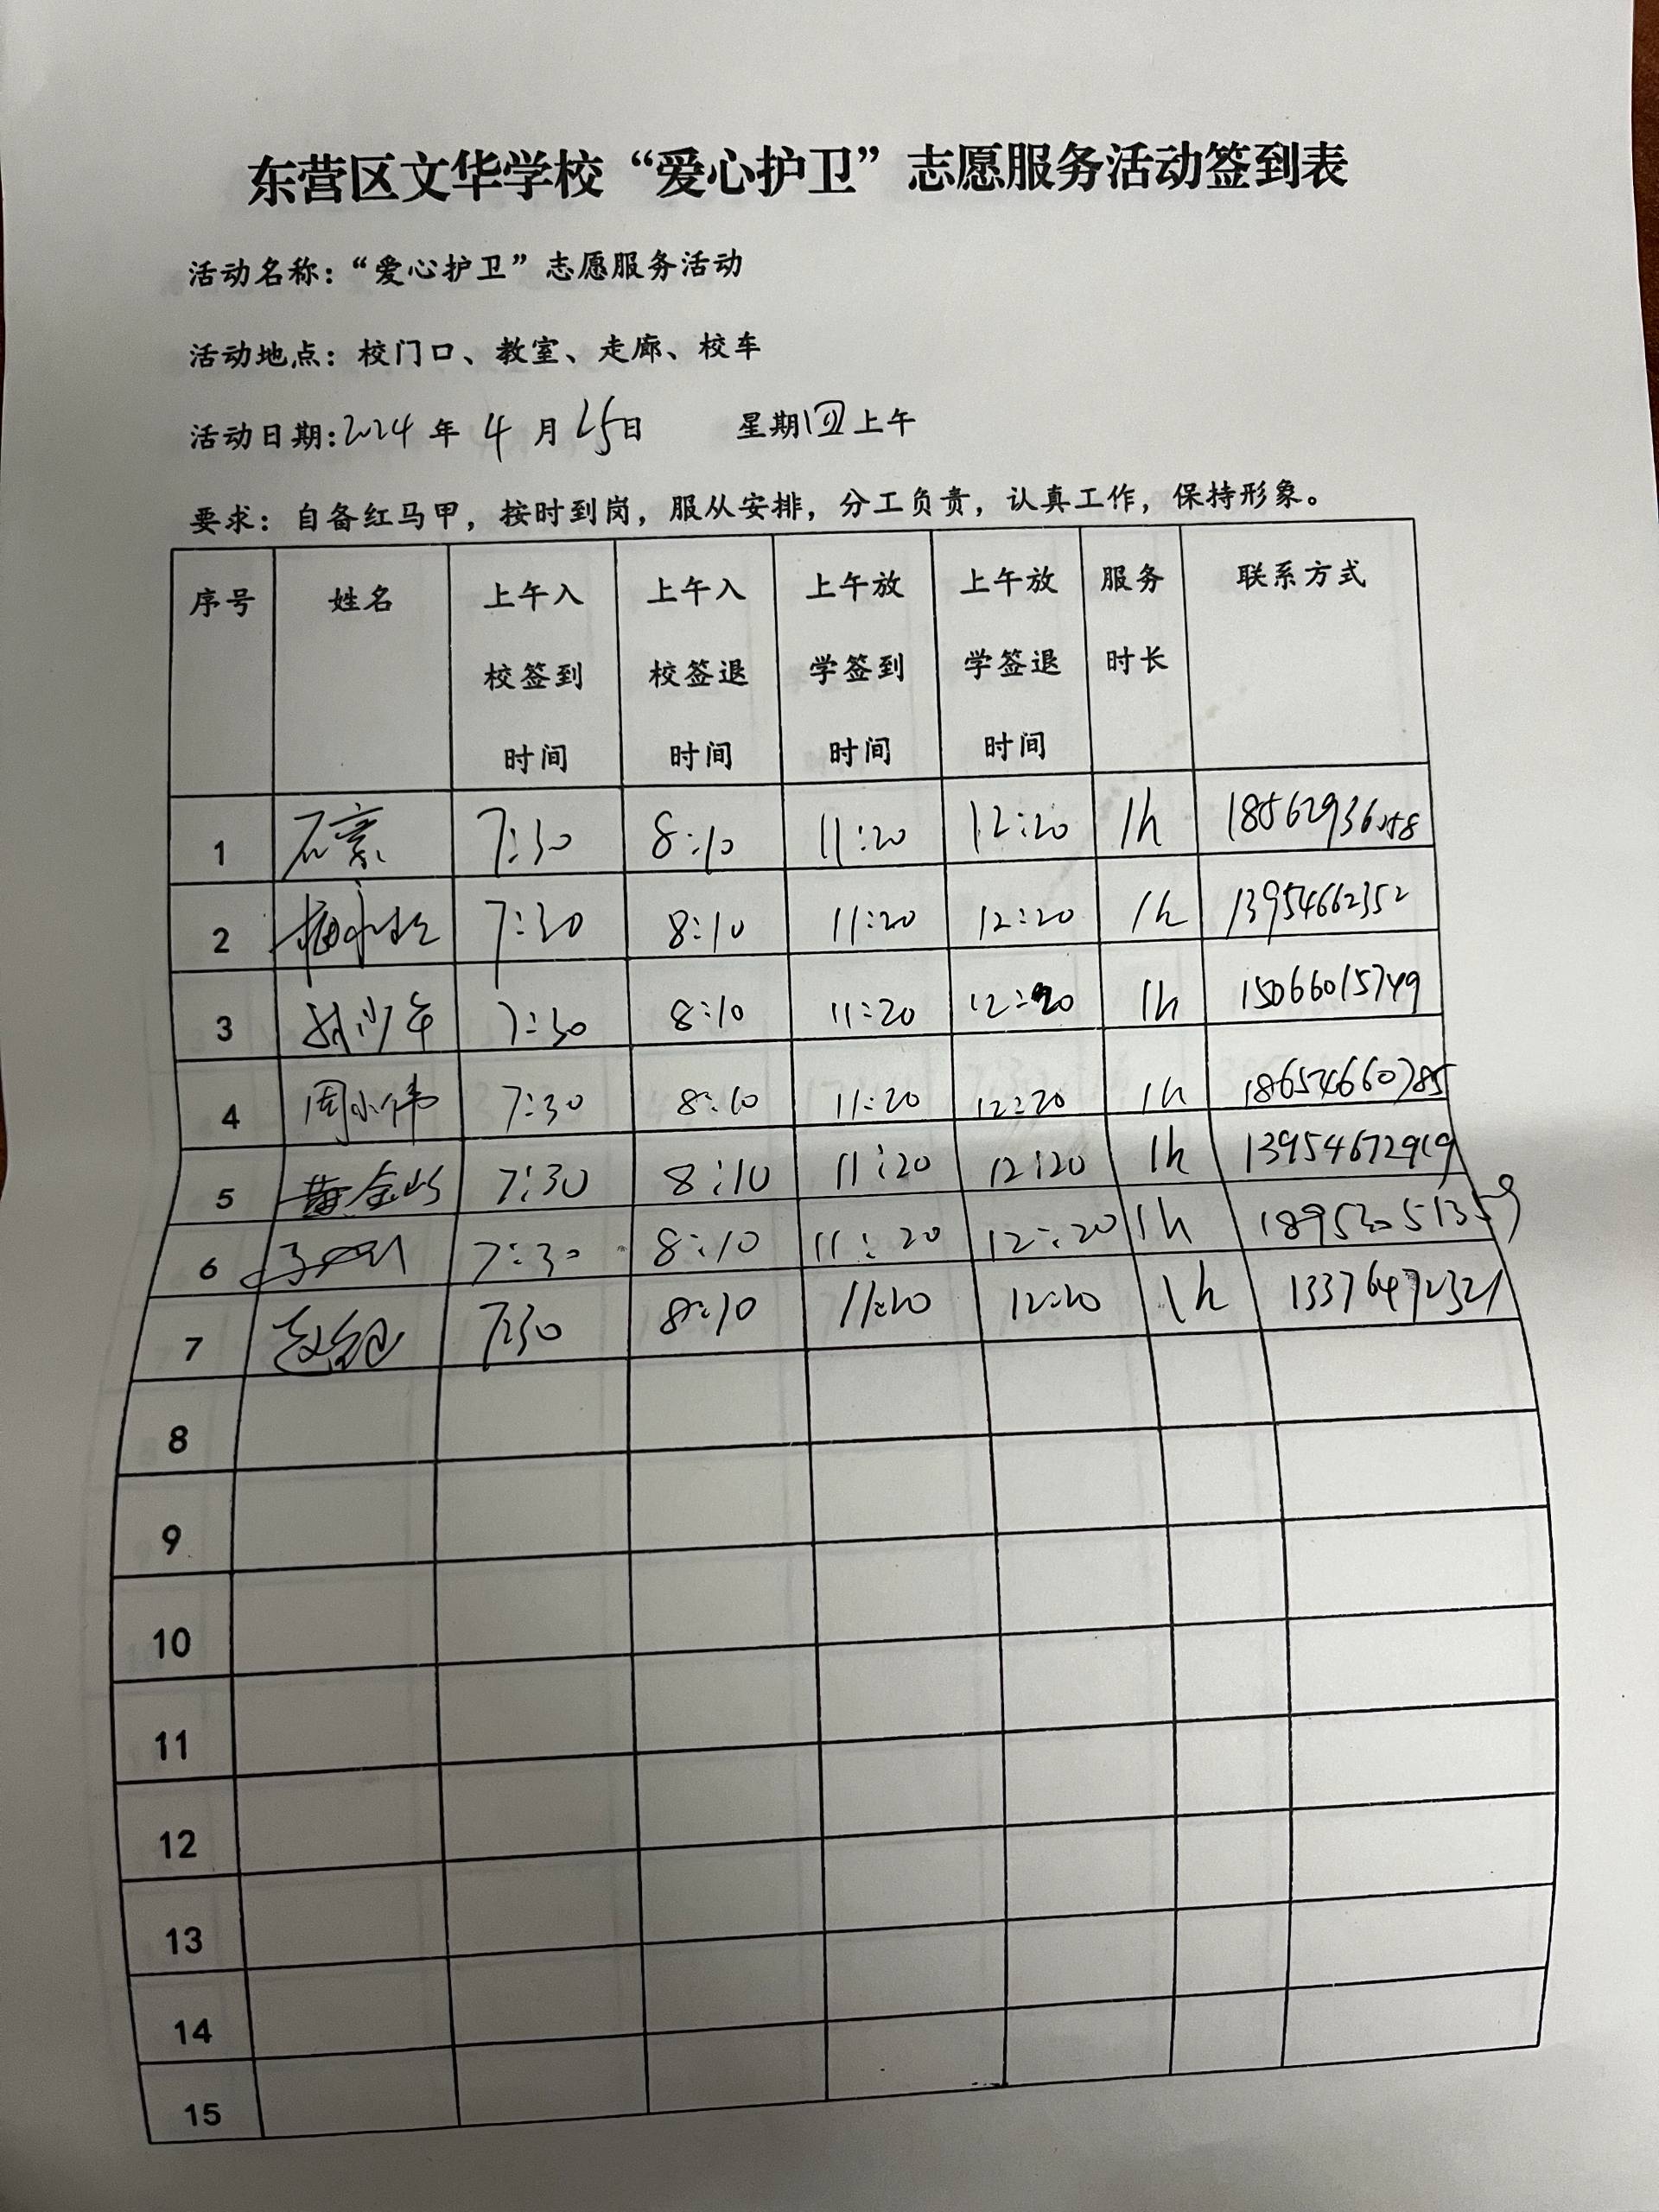 东营区文华学校“爱心护卫”志愿服务活动签到表
活动名称：“爱心护卫”志愿服务活动
活动地点：校门口、教室、走廊、校车
活动日期：2024年 4月 25日 星期四上午
要求：自备红马甲，按时到岗，服从安排，分工负责，认真工作，保持形象。
序号 姓名 上午入校签到时间 上午入校签退时间 上午放学签到时间 上午放学签退时间 服务时长 联系方式
1 7:30 8:10 11:20 12:20 1h
2 7:30 8:10 11:20 12:20 1h 13954662352
3 7:30 8:10 11:20 12:20 1h 15066015749
4 周小伟 7:30 8:10 11:20 12:20 1h 18654660785
5 黄金山 7:30 8:10 11:20 12:20 1h 13954672919
6 7:30 8:10 11:20 12:20 1h
7 7:30 8:10 11:20 12:20 1h 13376472321
8
9
10
11
12
13
14
15